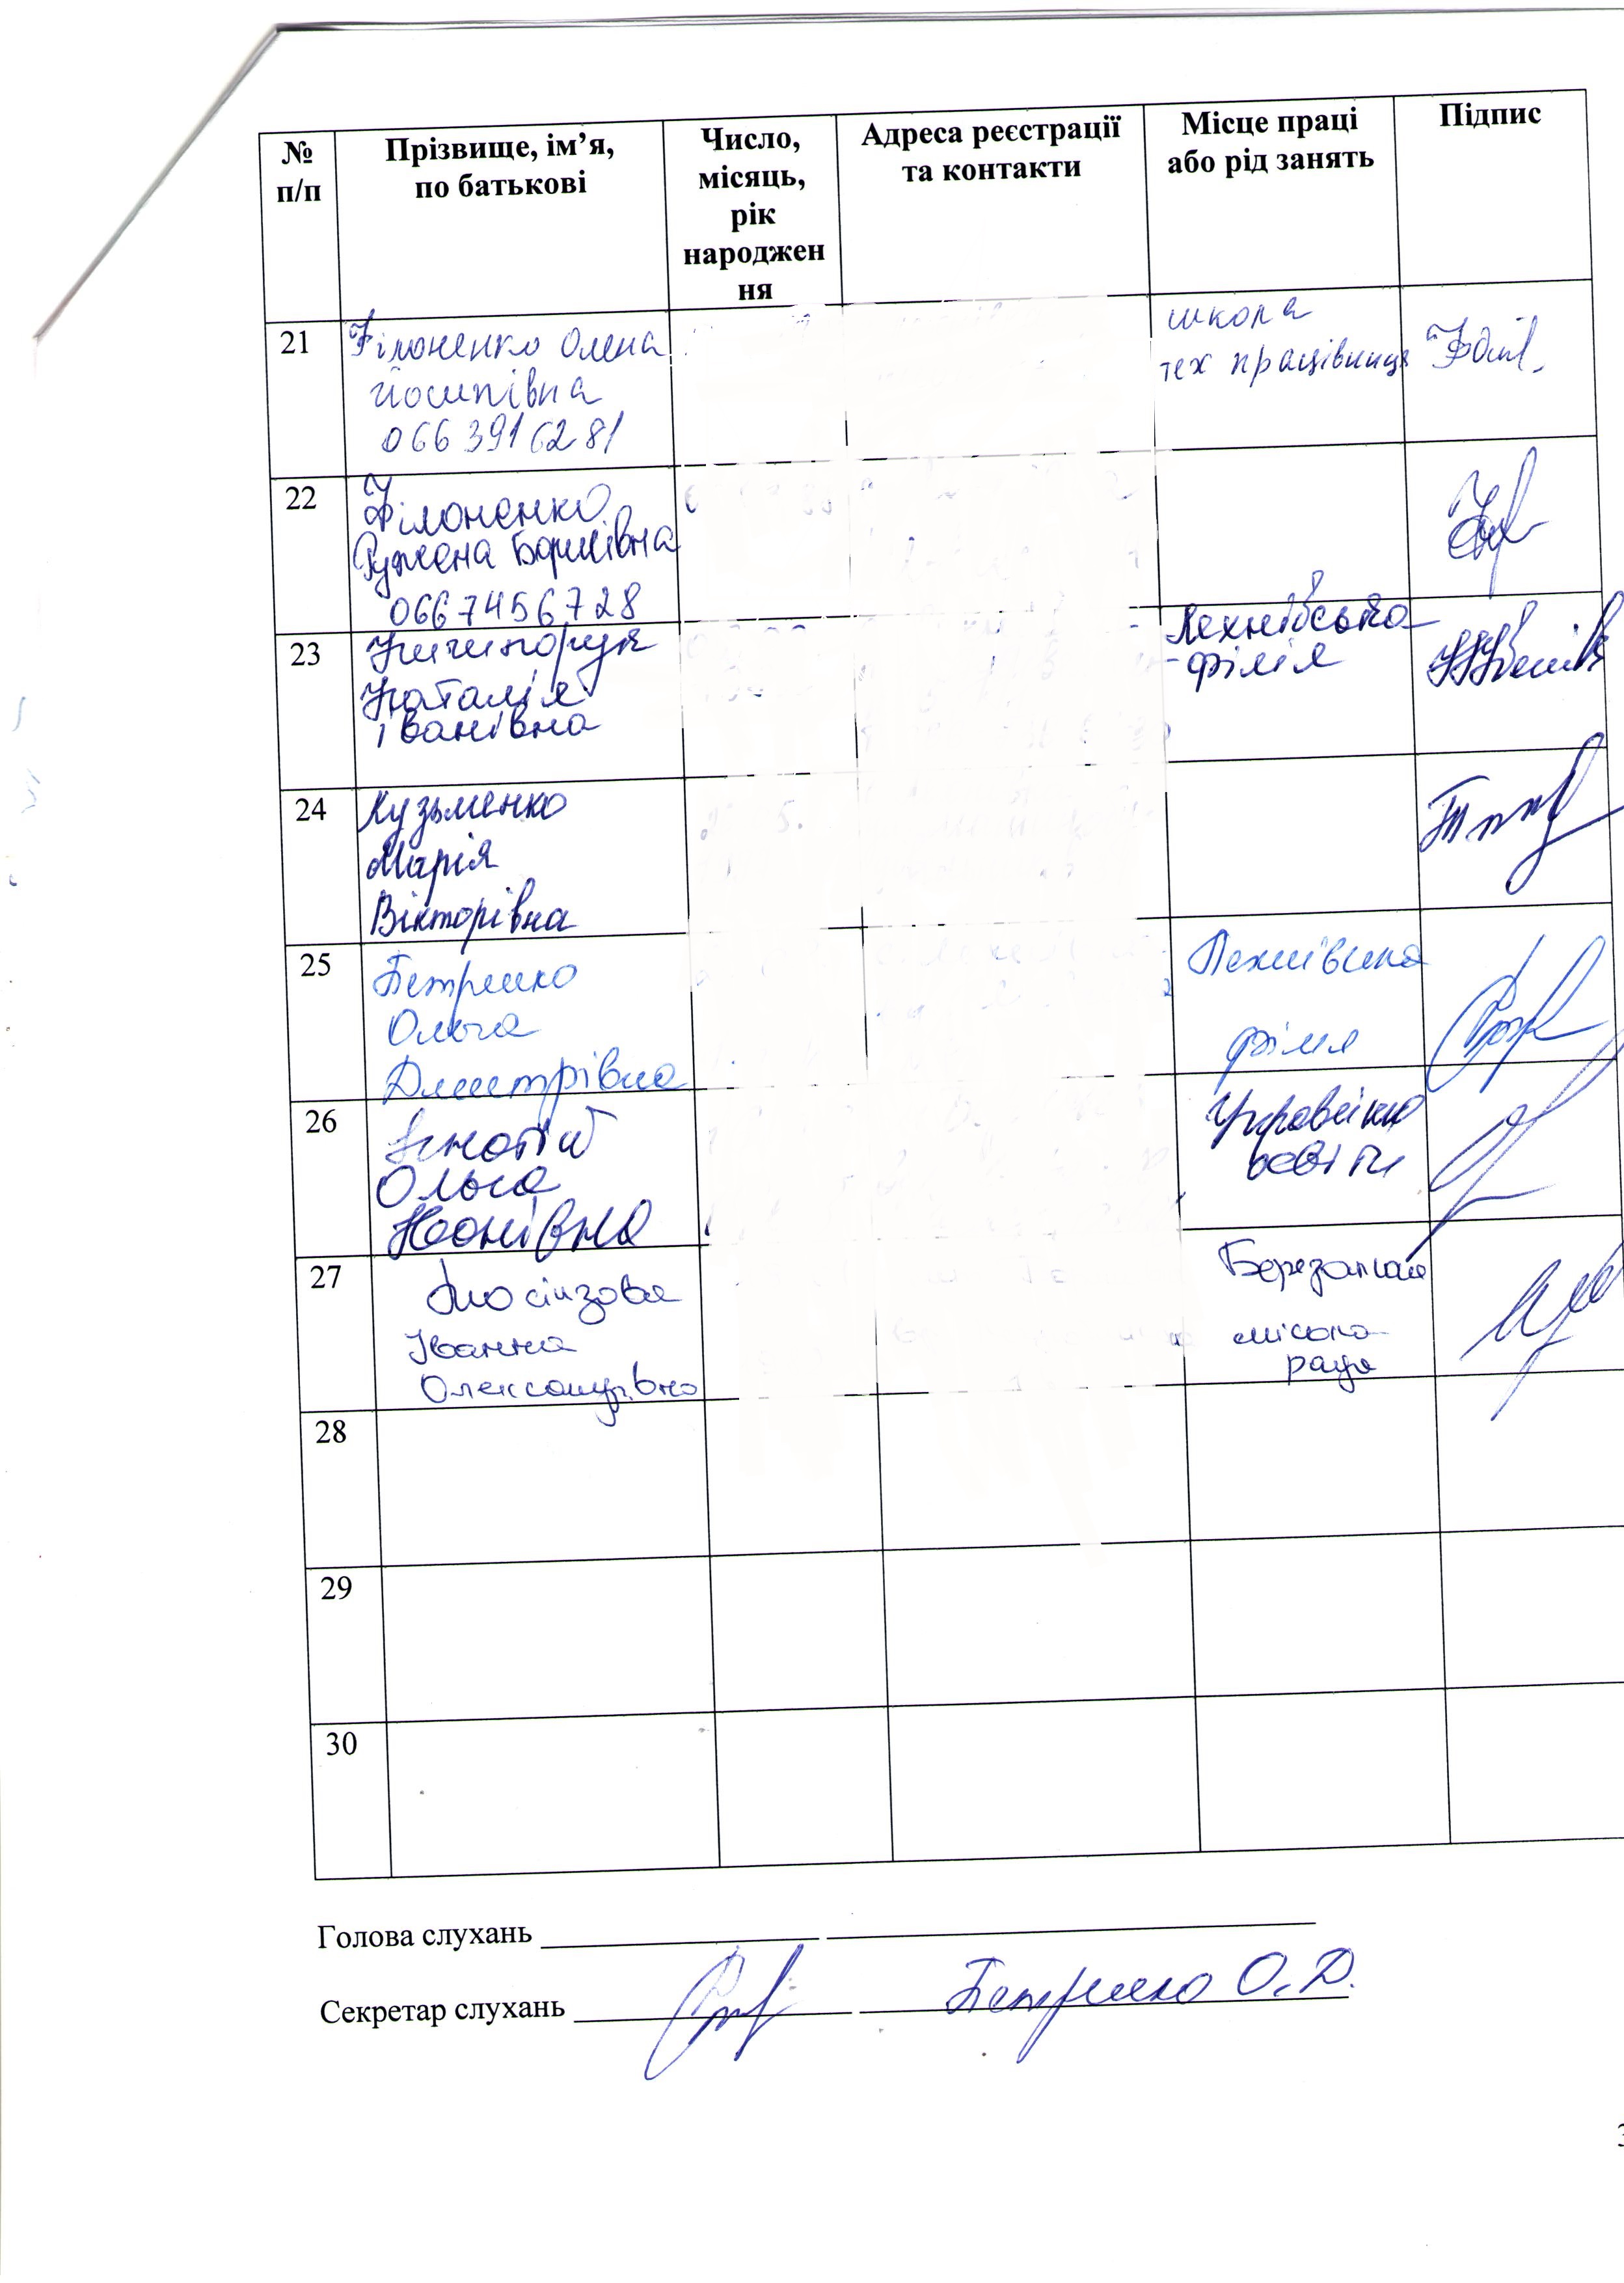 № п/п
Прізвище, ім’я,
по батькові
Число,
місяць,
рік
народжен
ня
Адреса реєстрації
та контакти
Місце праці
або рід занять
Підпис
21
Філоненко Олена
Йосипівна
066 391 62 81
школа
тех працівниця
22
Філоненко
Ружена Борисівна
066 7456728
23
Ничипорук
Наталія
Іванівна
філія
24
Кузьменко
Марія
Вікторівна
25
Петренко
Ольга
Дмитрівна
філія
26
Ольга
Управління
освіти
27
Іванна
Олександрівна
Березанська
міська
рада
28
29
30
Голова слухань
Секретар слухань
Петренко О.Д.
3